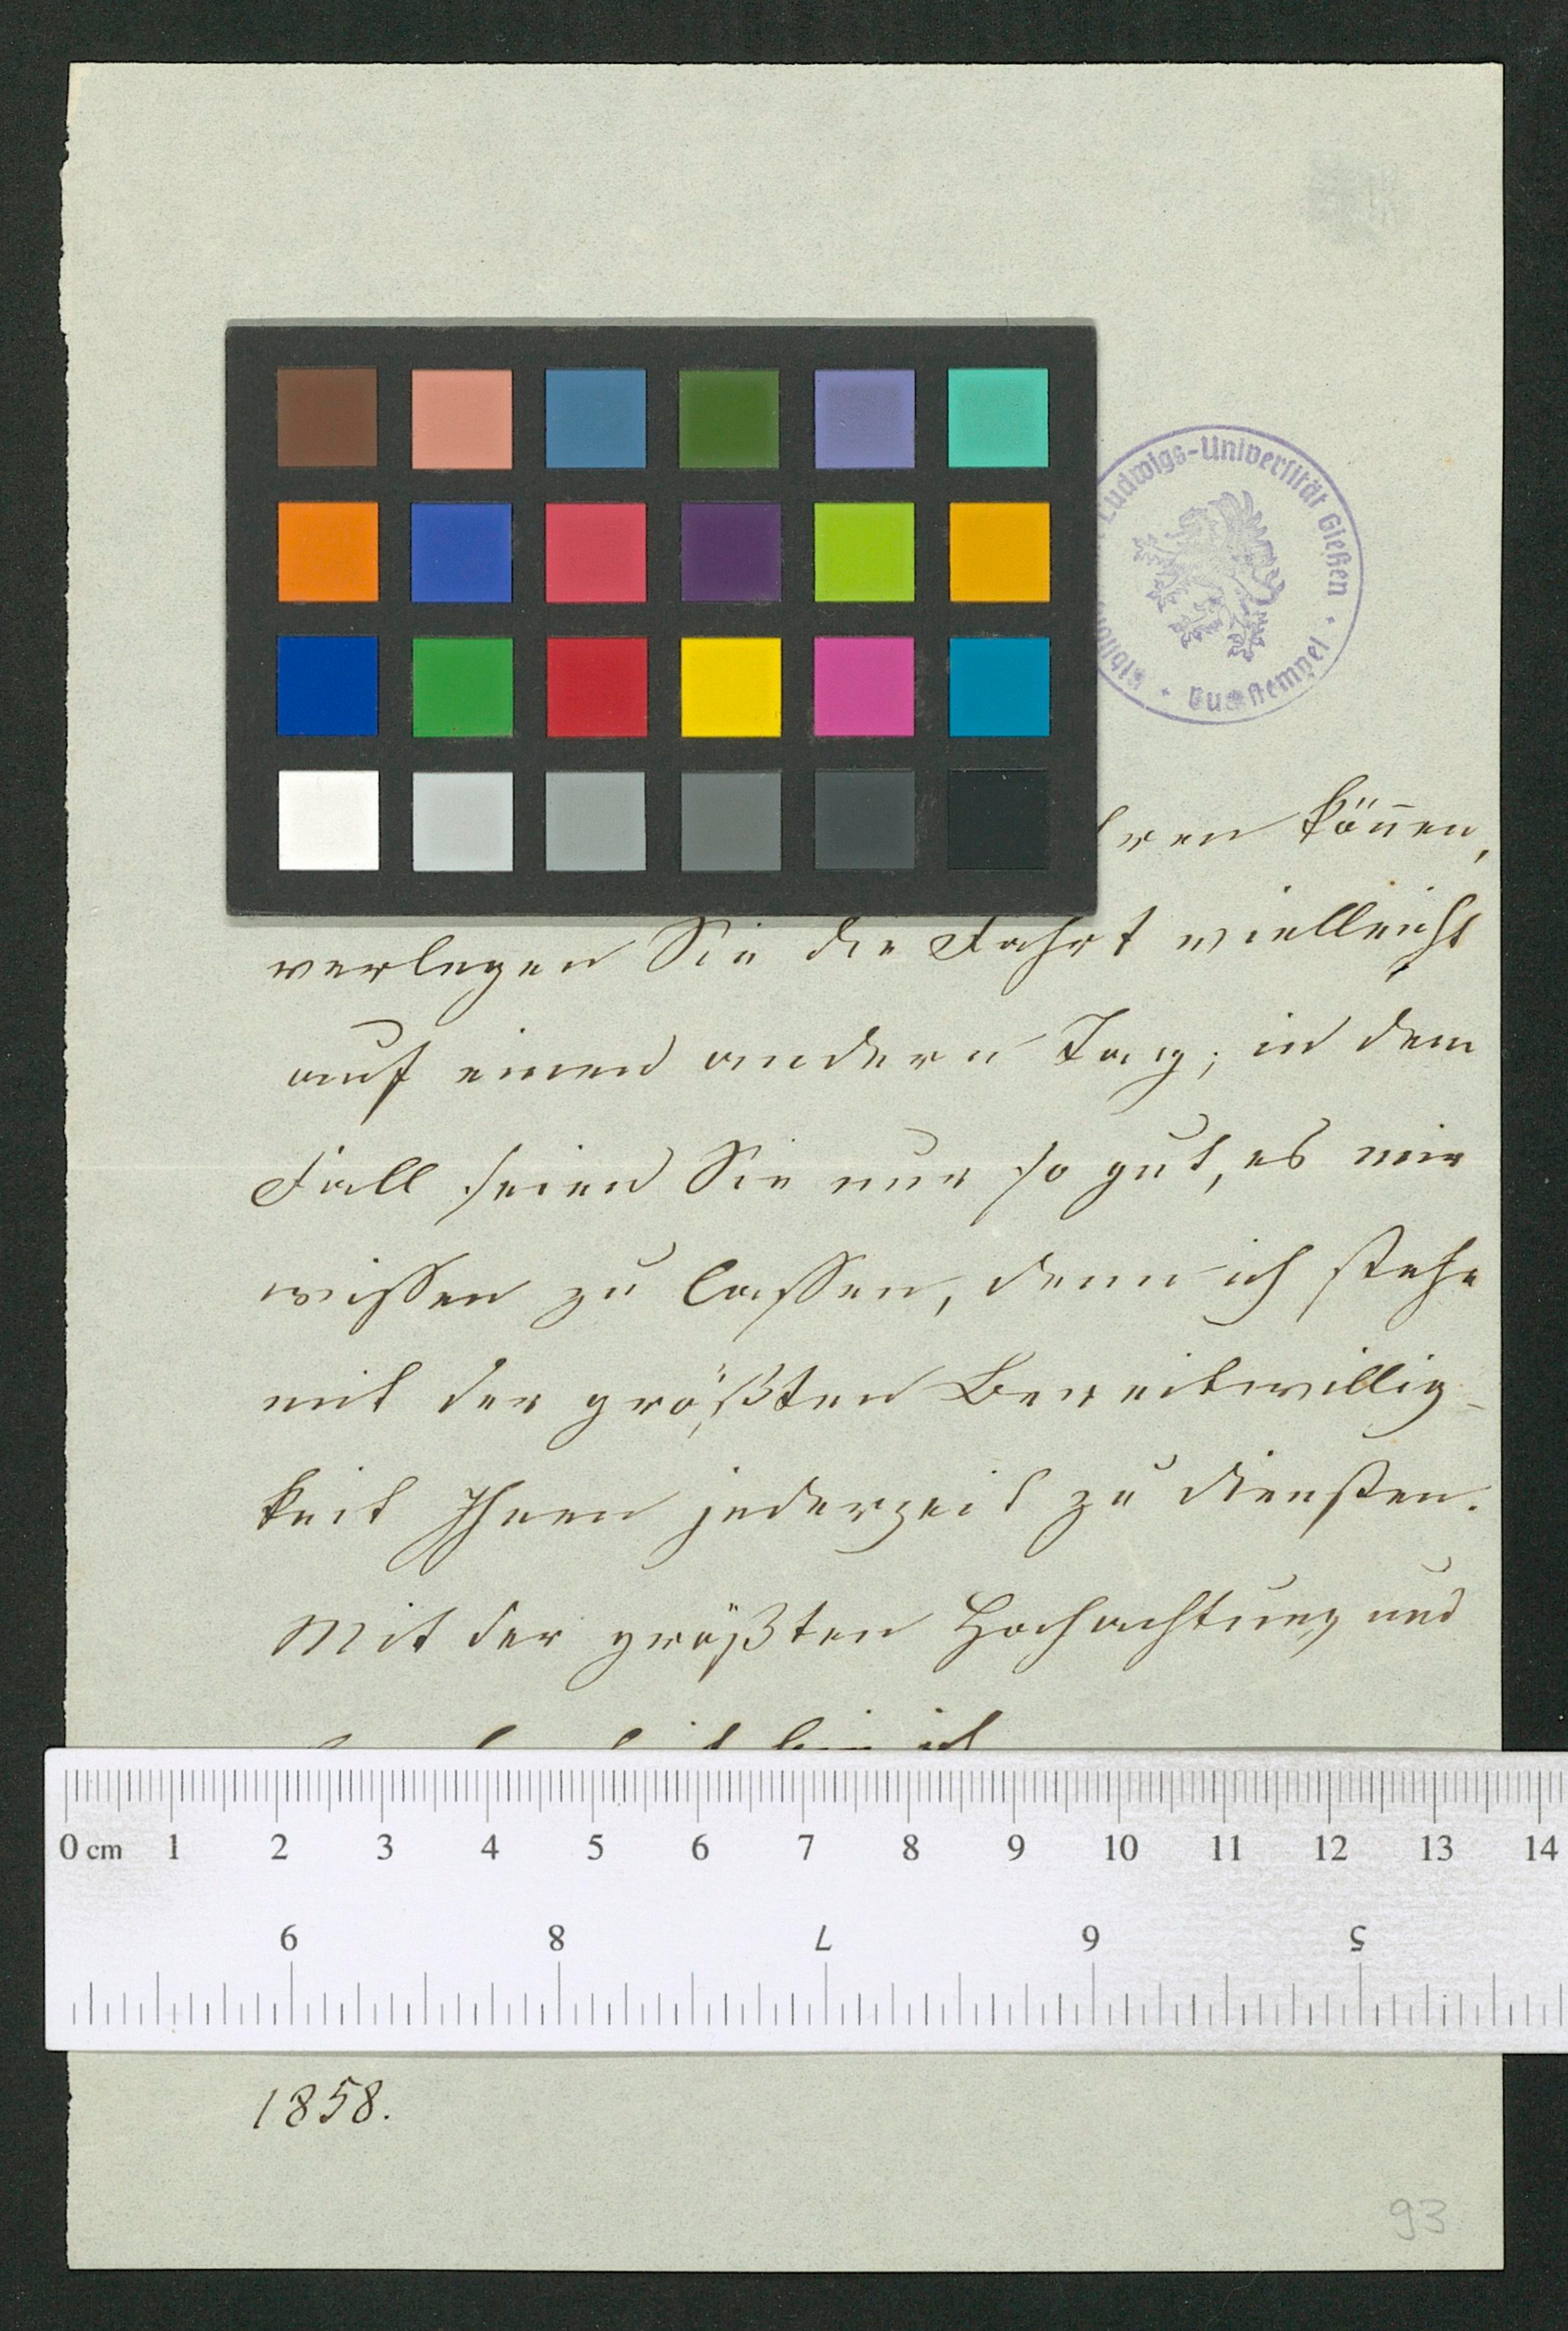 Ludwigs-Universität Gießen · Buchstempel ·
können,
verlegen Sie die Fahrt vielleicht
auf einen andern Tag; in dem
Fall seien Sie nur so gut, es mir
wissen zu lassen, denn ich stehe
mit der größten Bereitwillig-
keit Ihnen jederzeit zu diensten.
Mit der größten Hochachtung und
bin ich
0 cm 1 2 3 4 5 6 7 8 9 10 11 12 13 14
9 8 7 6 5
1858.
93